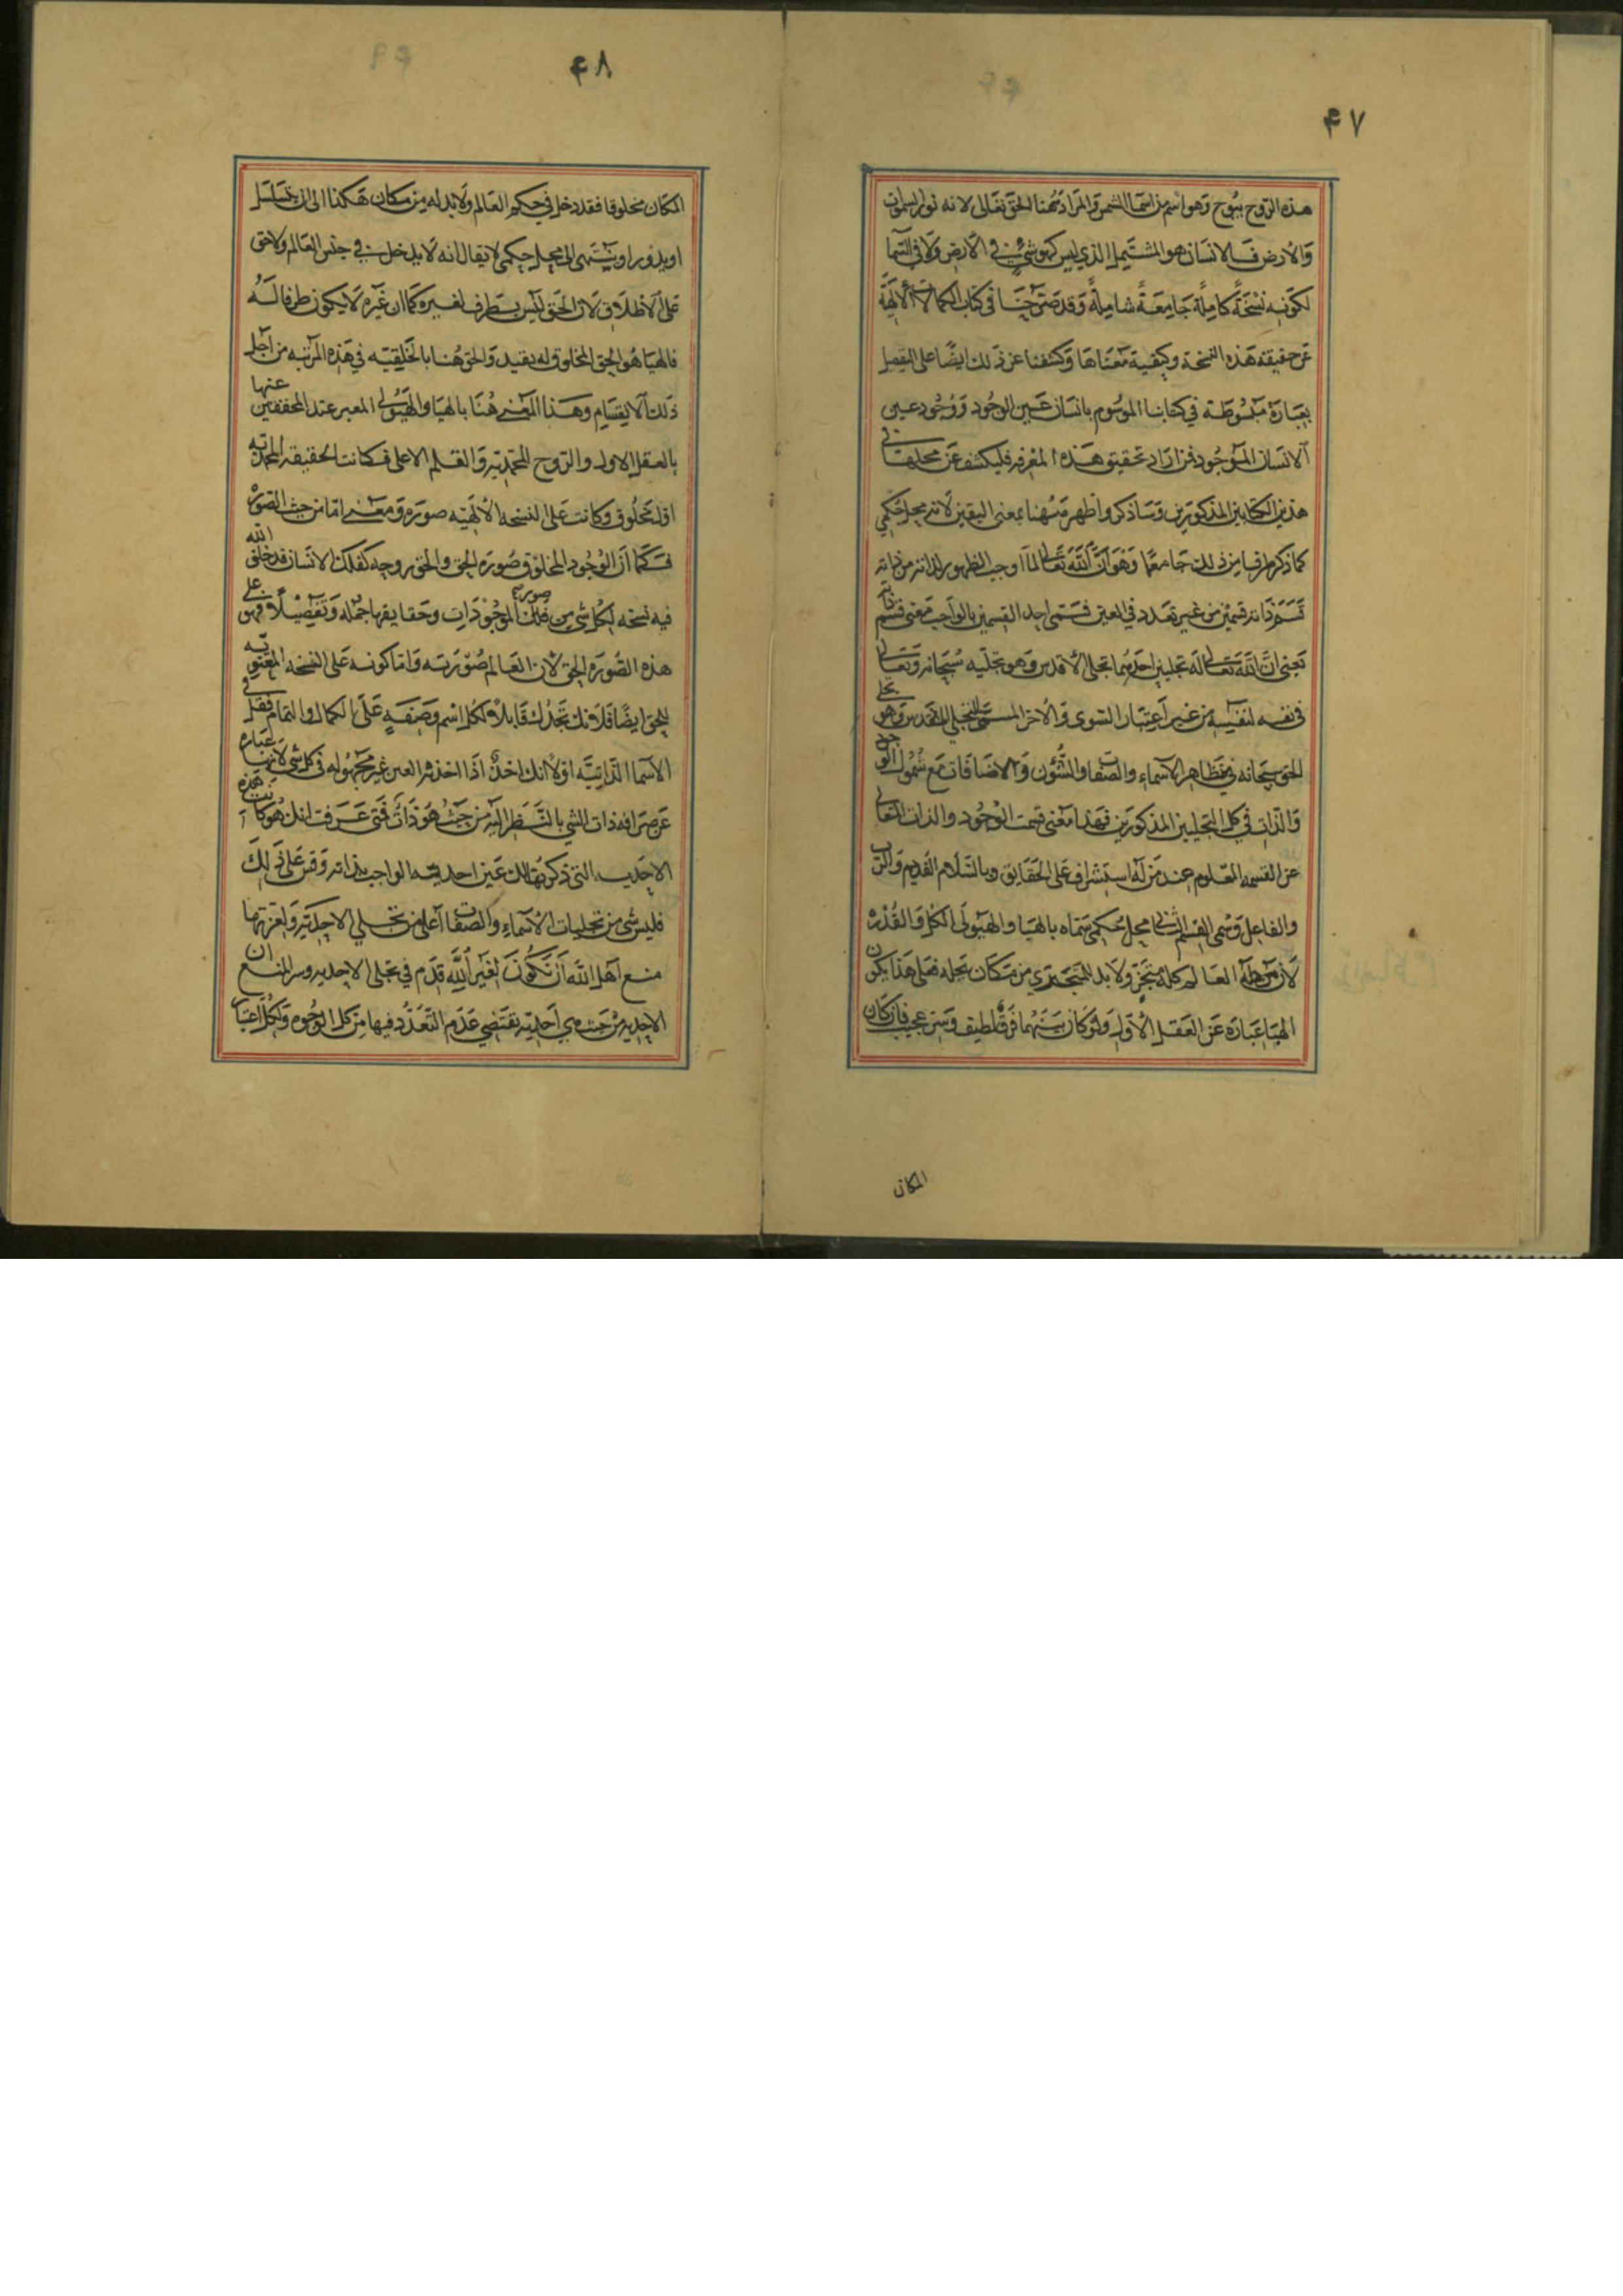 ۴۷
هذه الروح بيوح وهو اسم من اسما الشمس والمراد هنا الحق تعالى لانه نور السموات
والارض فالانسان هو المشتمل الذي ليس كهو شئ في الارض ولا في السما
لكونه نسخة كاملة جامعة شاملة وقد صرحنا في كتاب الكمالات الالهية
عن حقيقة هذه النسخة وكيفية معناها وكشفنا عن ذلك ايضا على التفصيل
بعبارة مبسوطة في كتابنا الموسوم بانسان عين الوجود ووجود عين
الانسان الموجود فمن اراد تحقيق هذه المعرفه فليكشف عن محلها في
هذين الكتابين المذكورين وساذكر واظهر هنا بمعنى اليقين لانه محل حكمي
كما ذكر طرفا من ذلك جامعا وهو ان الله تعالى لما اوجب الظهور لذاته من ذاته
قسم ذاته قسمين من غير تعدد في العين فسمى احد القسمين بالواجب معنى قسم ذاته
يعني ان الله تعالى له تجليين احدهما تجلى الاقدس وهو تجليه سبحانه وتعالى
في نفسه لنفسه من غير اعتبار السوى والاخر المسمى بالتجلي المقدس وهو تجلى
الحق سبحانه في مظاهر الاسماء والصفات والشئون والاضافات مع شمول الوجود
والذات في كل التجليين المذكورين فهذا معنى قسمت الوجود والذات المتعالى
عن القسمه المعلوم عند من له استشراف على الحقايق وبالسلام القديم والرب
والفاعل وسمى القسم الثاني محل حكمي سماه بالهيا والهيولى الكل والقدره
لان جملة العالم كله متحيز ولا بد للمتحيز من مكان تحله فعلى هذا يكون
الهيا عبارة عن العقل الاول ولو كان بينهما فرق لطيف وسر عجيب فان كان
المكان
۴۸
المكان مخلوقا فقد دخل في حكم العالم ولا بد له من مكان هكذا الى ان يتسلسل
او يدور او ينتهى الى محل حكمي لا يقال انه لا يدخل في جنس العالم ولا حق
على الاطلاق لان الحق ليس بظرف لغيره كما ان غيره لا يكون ظرفا له
فالهيا هو الحق المخلوق له بقيد والحق هنا بالخلقيه في هذه المرتبه من اجل
ذلك الانقسام وهذا المعنى هنا بالهيا والهيولى المعبر عنها عند المحققين
بالعقل الاول والروح المحمديه والقلم الاعلى فكانت الحقيقه المحمديه
اول مخلوق وكانت على النسخه الالهيه صورة ومعنى اما من حيث الصوره
فكما ان الوجود المخلوق صورة الحق والحق روحه كذلك الانسان قد خلق الله
فيه نسخه لكل شى من فلك الموجودات وحقايقها جملة وتفصيلا فهو على صورة
هذه الصورة الحق لان العالم صورته واما كونه على النسخه المعنويه
للحق ايضا فلانك تجد لك قابلا لكل اسم وصفة على الكمال والتمام فقل في
الاسما الذاتيه اولا انك احد اذا اخذت العين غير مجهوله في كل شى لانها عباره
عن صرافه ذات الشي بالنظر اليه من حيث هو ذات فمتى عرفت انك هو كانت هذه
الاحديه التي ذكرتها لك عين احديته الواجب بذاته وقس على ذلك
فليس شى من تجليات الاسماء والصفات اعلى من تجلي الاحديه ولعزتها
منع اهل الله ان تكون لغير الله قدم في تجلى الاحديه وسر المنع ان
الاحديه من حيث هي احديته تقتضي عدم التعدد فيها من كل الوجوه ولكل اعتبار